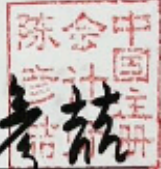 中国注册
会计师
陈
喆